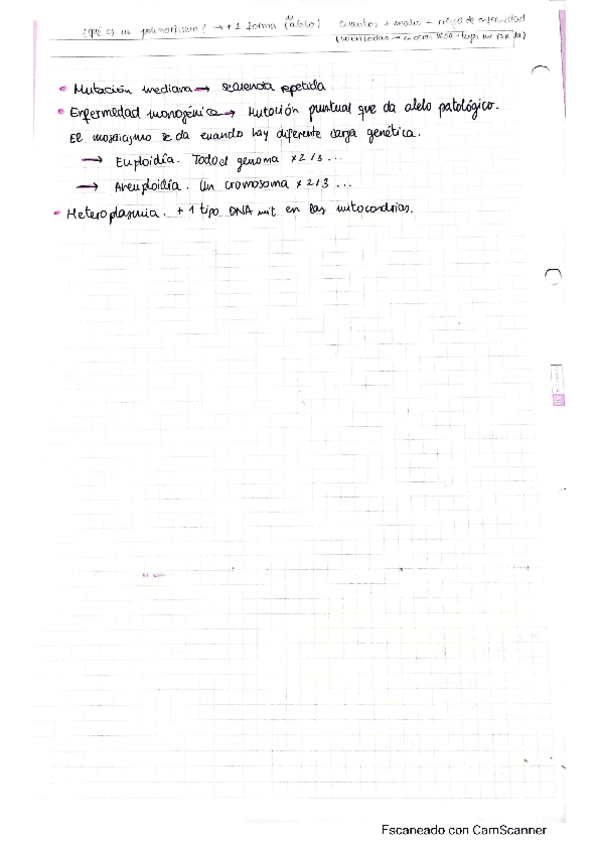 ¿qué es un polimorfismo? → + 1 forma de (alelo) cuantos + malos - riesgo de enfermedad
• Mutación mediana → secuencia repetida
• Enfermedad monogénica → Mutación puntual que da alelo patológico.
El mosaicismo se da cuando hay diferente carga genética.
→ Euploidía. Todo el genoma x 2 / 3 ...
→ Aneuploidía. Un cromosoma x 2 / 3 ...
• Heteroplasmia. + 1 tipo DNA mit en las mitocondrias.
Escaneado con CamScanner